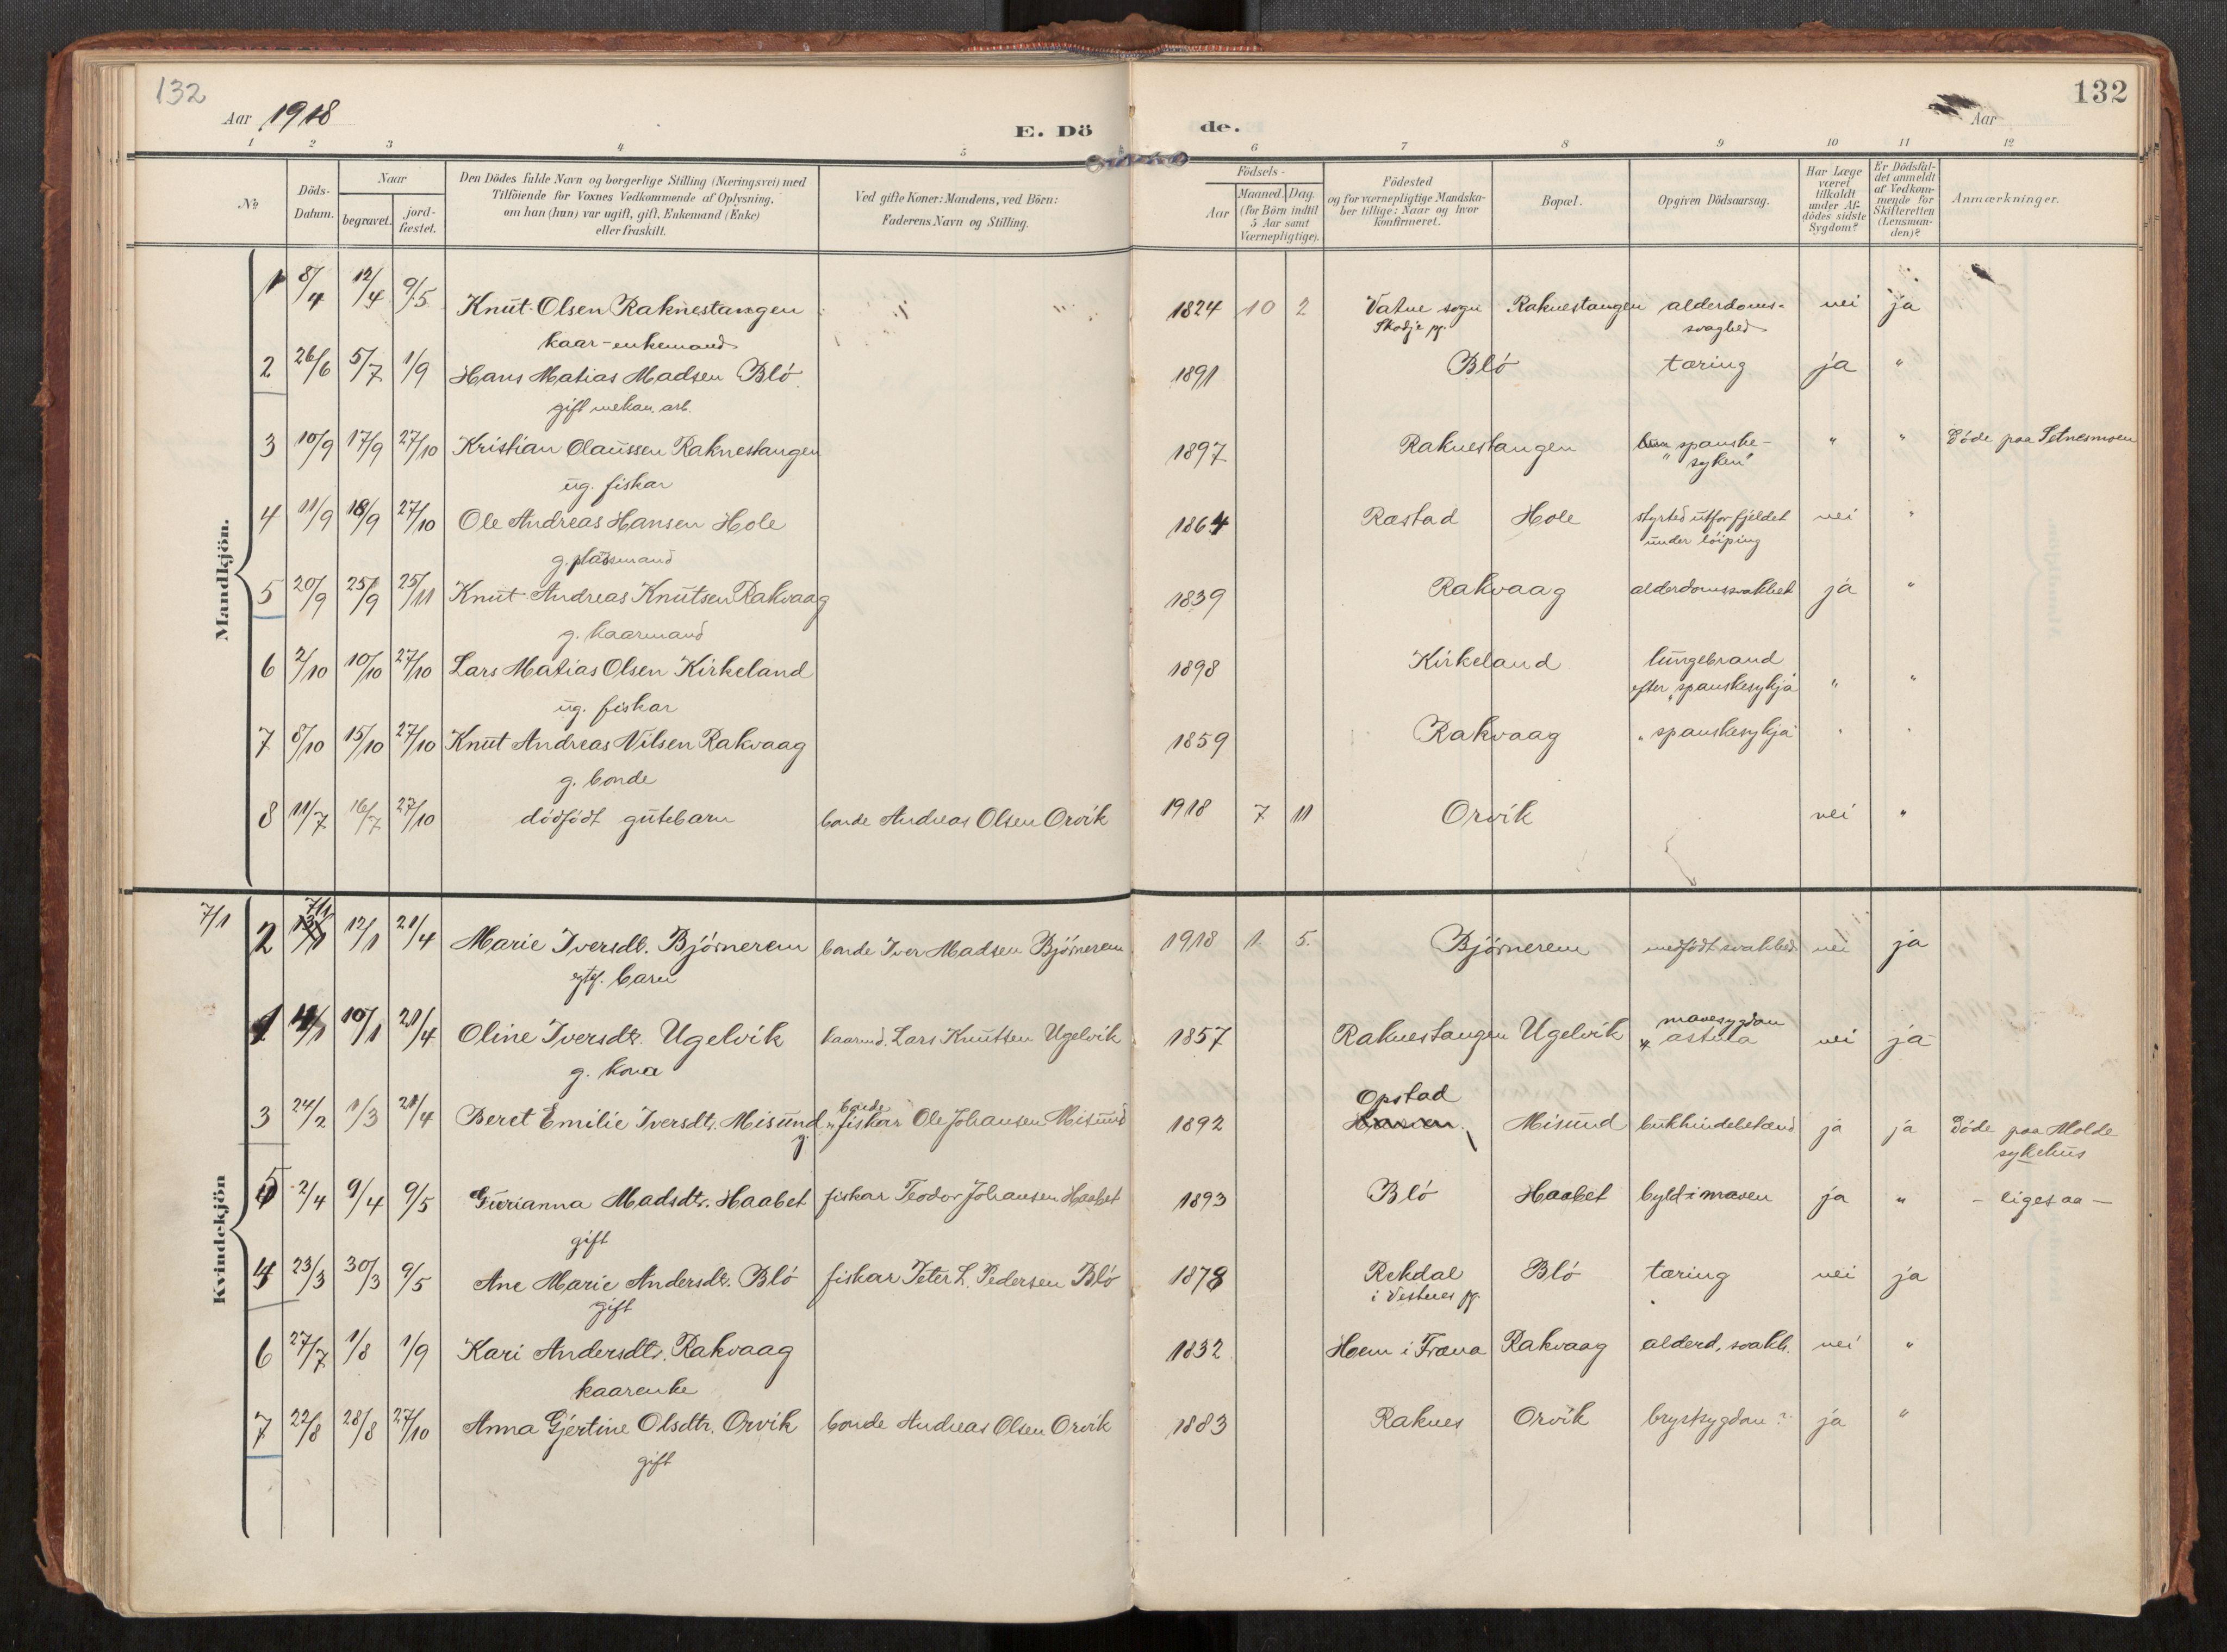 132
132
Aar 1918
E. Dö
de.
Aar
1 2 3 4 5 6 7 8 9 10 11 12
No
Döds-Datum.
Naar
begravet.
jord-fæstet.
Den Dödes fulde Navn og borgerlige Stilling (Næringsvei) med
Tilföiende for Voxnes Vedkommende af Oplysning,
om han (hun) var ugift, gift, Enkemand (Enke)
eller fraskilt.
Ved gifte Koner: Mandens, ved Börn:
Faderens Navn og Stilling.
Födsels-
Aar
Maaned. Dag.
(for Börn indtil
5 Aar samt
Værnepligtige).
Födested
og for værnepligtige Mandska-
ber tillige: Naar og hvor
konfirmeret.
Bopæl.
Opgiven Dödsaarsag.
Har Læge
været
tilkaldt
under Af-
dödes sidste
Sygdom?
Er Dödsfal-
det anmeldt
af Vedkom-
mende for
Skifteretten
(Lensman-
den)?
Anmærkninger.
Mandkjön.
1 8/4 12/4 9/5 Knut Olsen Raknestangen 1824 10 2 Vatne sogn Raknestangen alderdoms- nei ja
kaar-enkemand Skodje pg. svaghed
2 26/6 5/7 1/9 Hans Matias Madsen Blö 1891 Blö tæring ja "
gift mekan. arb.
3 10/9 17/9 27/10 Kristian Olaussen Raknestangen 1897 Raknestangen spanske- " " Döde paa Setnesmoen
ug. fiskar " syken"
4 11/9 18/9 27/10 Ole Andreas Hansen Hole 1864 Rastad Hole styrted utfor fjeldet nei "
g. plassmand under löiping
5 20/9 25/9 25/11 Knut Andreas Knutsen Rakvaag 1839 Rakvaag alderdomssvakhet ja "
g. kaarmand
6 2/10 10/10 27/10 Lars Matias Olsen Kirkeland 1898 Kirkeland lungebrand
ug. fiskar efter "spanskesykja" " "
7 8/10 15/10 27/10 Knut Andreas Nilsen Rakvaag 1859 Rakvaag "spanskesykja" " "
g. bonde
8 11/7 16/7 27/10 dödfödt gutebarn bonde Andreas Olsen Orvik 1918 7 11 Orvik nei "
Kvindekjön
7/1
2 7/1 12/1 21/4 Marie Iversdt. Björnerem bonde Iver Madsen Björnerem 1918 1. 5. Björnerem medfödt svakhed nei ja
egtef. barn
1 4/1 10/1 21/4 Oline Iversdtr. Ugelvik kaarmd. Lars Knutsen Ugelvik 1857 Raknestangen Ugelvik mavesygdom nei ja
g. kona
3 24/2 1/3 21/4 Beret Emilie Iversdtr. Misund bonde 1892 Opstad Misund bukhindebetænd ja ja Döde paa Molde
g. " fiskar Ole Johansen Misund sykehus
5 2/4 9/4 9/5 Gurianna Madsdtr. Haabet fiskar Teodor Johansen Haabet 1893 Blö Haabet byld i maven ja " - ligesaa -
gift
4 23/3 30/3 9/5 Ane Marie Andersdtr. Blö fiskar Peter L. Pedersen Blö 1878 Rekdal Blö tæring nei ja
gift i Vestnes pg.
6 27/7 1/8 1/9 Kari Andersdtr. Rakvaag 1832 Hoem i Fræna Rakvaag alderd. svakh. nei "
kaarenke
7 22/8 28/8 27/10 Anna Gjertine Olsdtr. Orvik bonde Andreas Olsen Orvik 1883 Raknes Orvik brystsygdom? ja "
gift